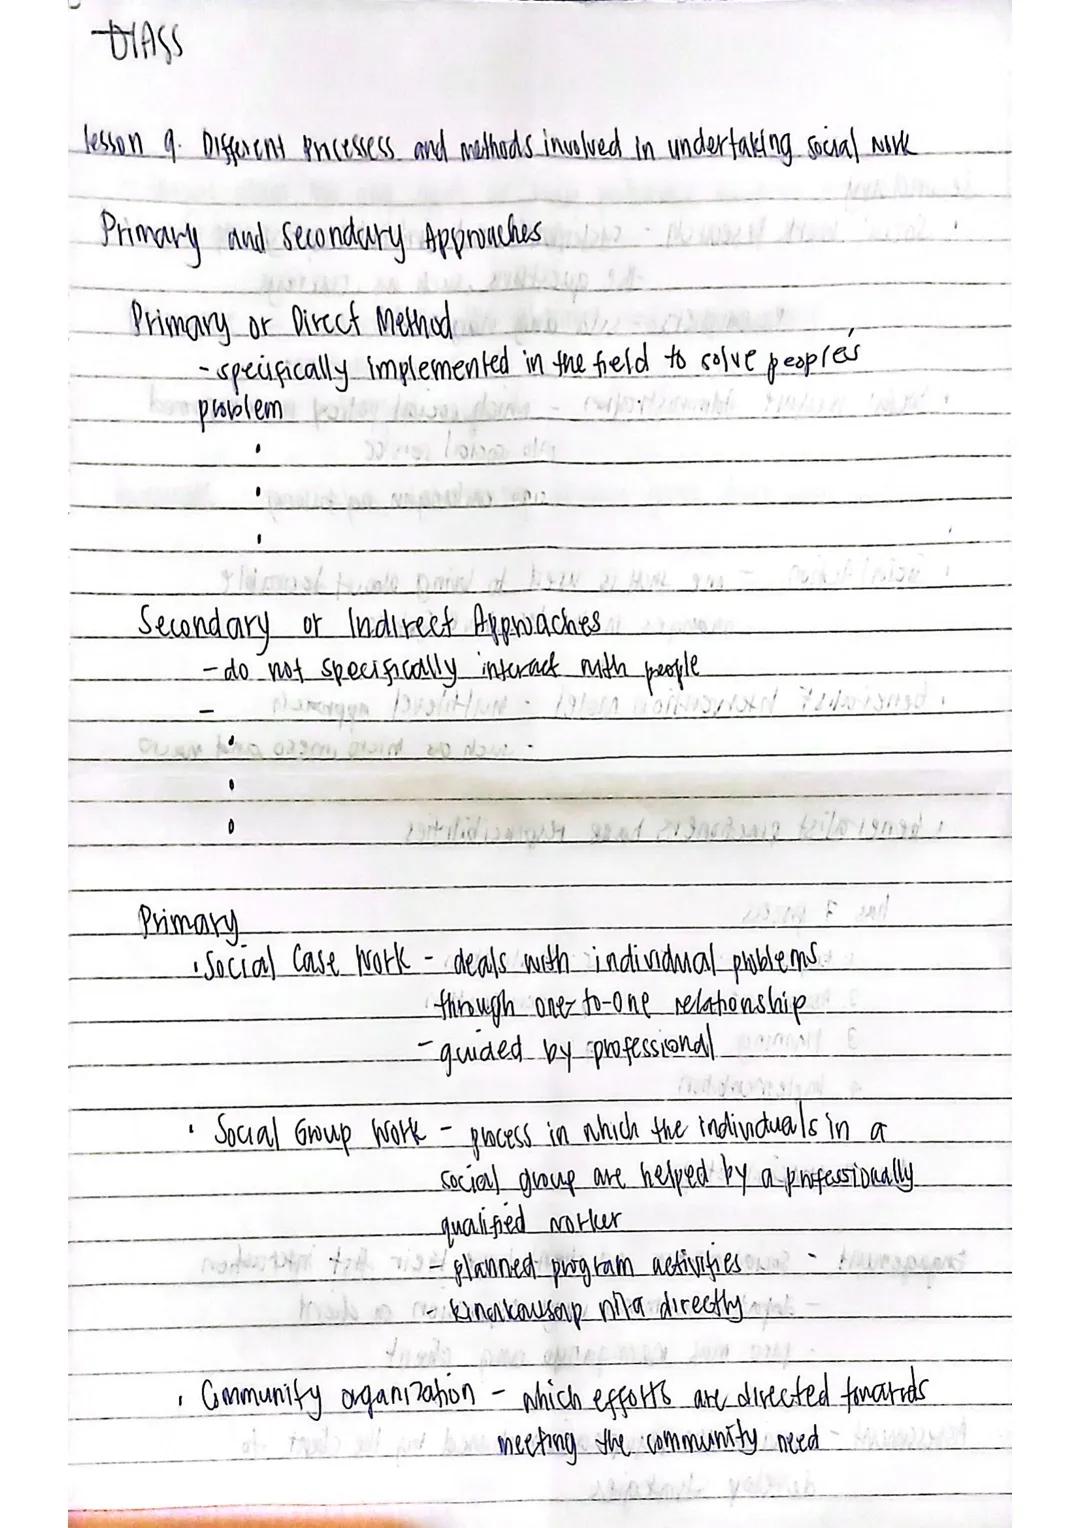 DIASS
lesson 9. Different Processess and methods involved in undertaking social work
Primary and Secondary Approaches
Primary or Direct Method
- specifically implemented in the field to solve people's
problem
•
•
•
Secondary or Indirect Approaches
- do not specifically interact with people
-
•
•
•
Primary
• Social Case Work - deals with individual problems
through one-to-one relationship
- guided by professional
• Social Group Work - process in which the individuals in a
social group are helped by a professionally
qualified worker
- planned program activities
- kinakausap nila directly
• Community organization - which efforts are directed towards
meeting the community need